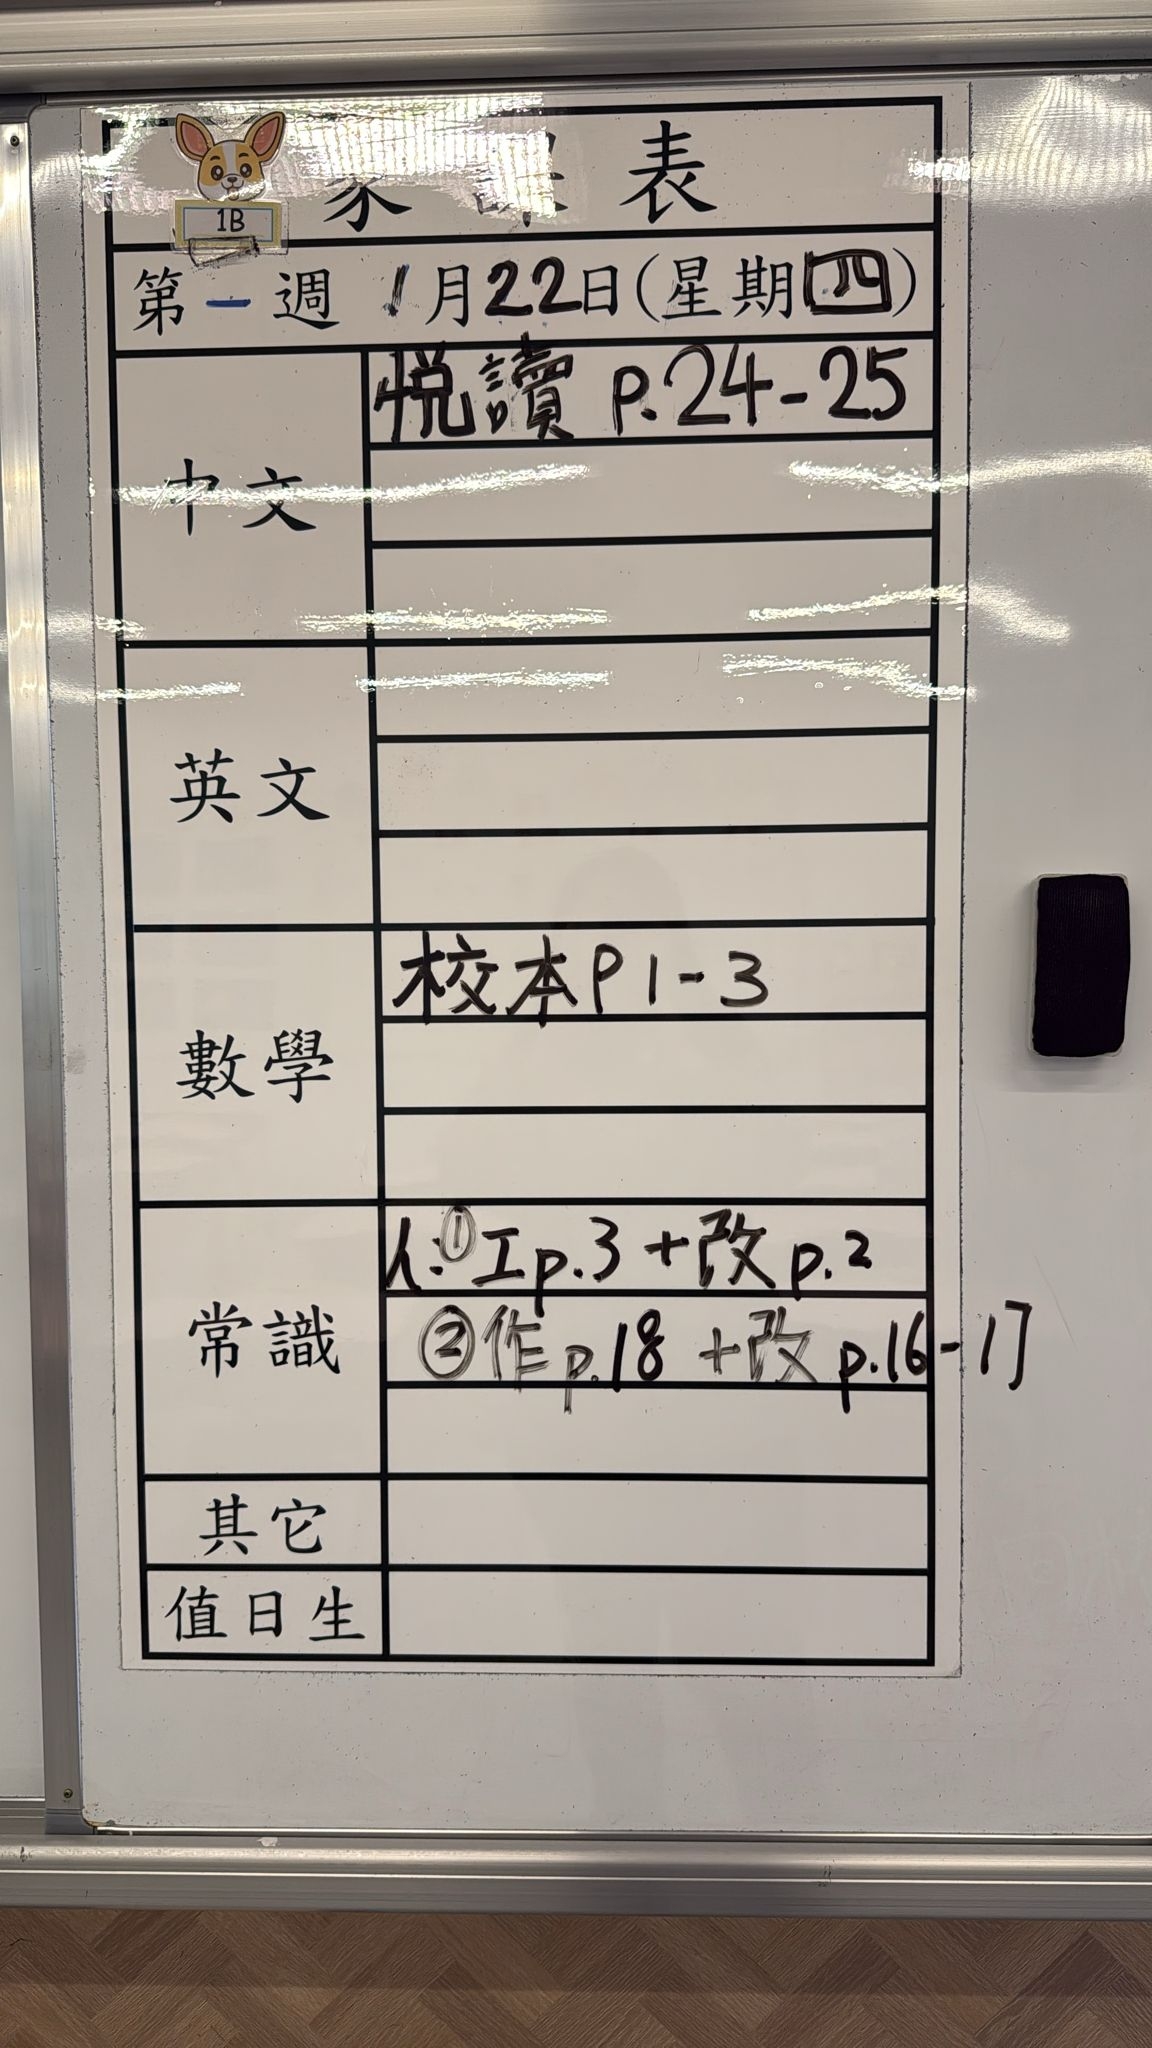 家課表
1B
第一週 1月22日(星期四)
中文
悅讀 p.24-25
英文
數學
校本P1-3
常識
人:①工p.3+改p.2
②作p.18+改p.16-17
其它
值日生